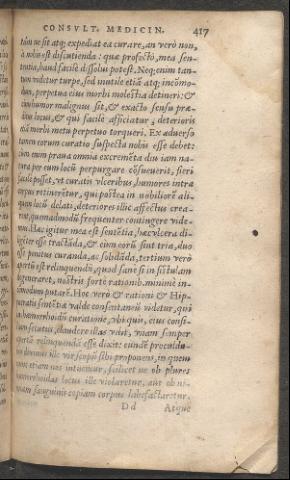 CONSVLT. MEDICIN. 417
tum ne sit atq; expediat ea curare, an verò non,
à nobis est discutienda: que profectò, mea sen-
tentia, haud facile dissolui potest. Neq; enim tan-
tum videtur turpe, sed inutile etiã atq; incõmo-
dum, perpetua eius morbi molestia detineri: &
cum humor malignus sit, & exacto sensu præ-
bus locus, & qui facile afficiatur; deterioris
etiã morbi metu perpetuo torqueri. Ex aduerso
tamen eorum curatio suspecta nobis esse debet:
cùm enim praua omnia excremẽta diu iam na-
tura per eum locũ perpurgare cõsueuerit, fieri
facile posset, vt curatis vlceribus, humores intra
corpus retinerẽtur, qui postea in nobiliorẽ ali-
quam locũ delati, deteriores illic affectus crea-
rent, quemadmodũ frequenter contingere vide-
mus. Hac igitur mea est sententia, hæc vlcera di-
ligẽter esse tractãda, & cùm eorũ sint tria, duo
esse penitus curanda, ac solidãda, tertium verò
apertũ est relinquendũ, quod sane si in fistulam
degeneraret, nostris fortè rationib. minimè in-
cõmodum putarẽ. Hoc verò & rationi & Hip-
pocratis sentẽtiæ valde consentaneũ videtur, qui
in hæmorrhoidũ curatione, vbi quis, eius consi-
lium secutus, claudere illas vult, vnam semper
apertã relinquendã esse dixit: eundẽ proculdu-
bio diuinus ille vir scopũ sibi proponens, in quem
nunc etiam nos intuemur, scilicet ne ob plures
hæmorrhoidas locus ille violaretur, aut ob ni-
miam sanguinis copiam corpus labefactaretur.
D d Atque